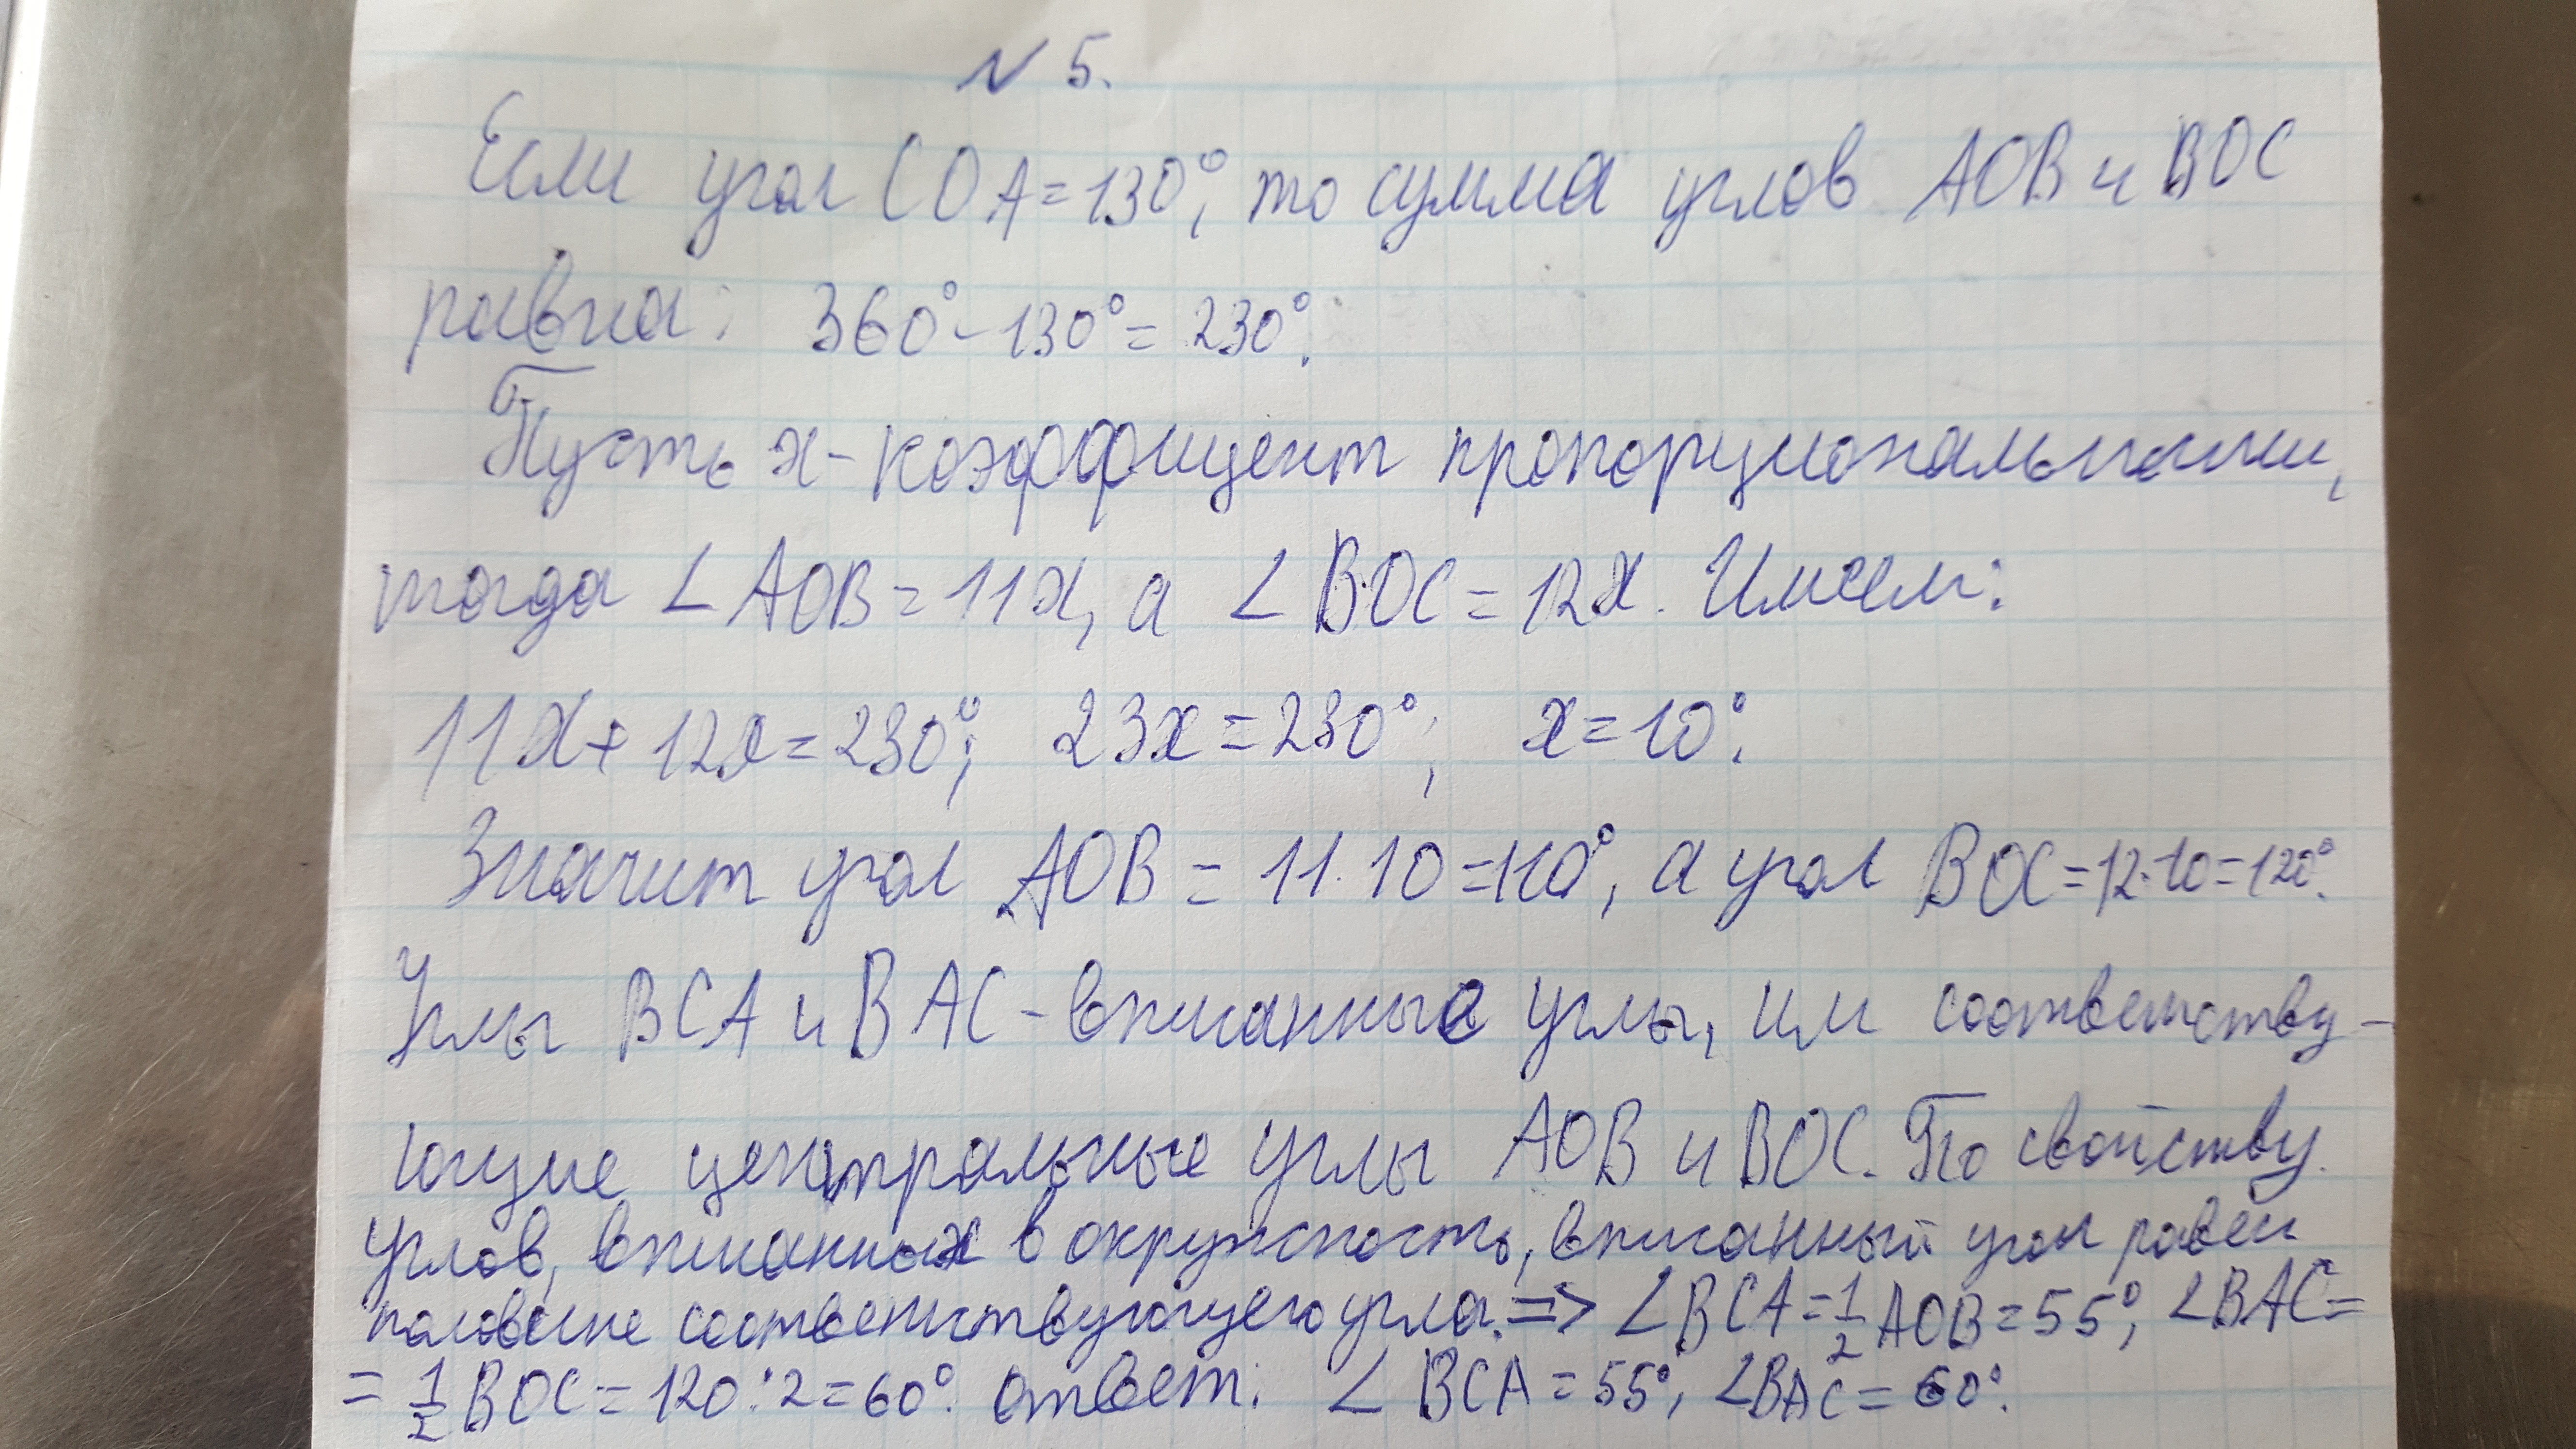 N 5.
Если угол COA=130°, то сумма углов AOB и BOC
равна: 360°-130°=230°.
Пусть x-коэффициент пропорциональности,
тогда ∠AOB=11x, а ∠BOC=12x. Имеем:
11x+12x=230°; 23x=230°; x=10°.
Значит угол AOB=11·10=110°, а угол BOC=12·10=120°.
Углы BCA и BAC-вписанные углы, им соответству-
ющие центральные углы AOB и BOC. По свойству
углов, вписанных в окружность, вписанный угол равен
половине соответствующего угла.=> ∠BCA=1/2 AOB=55°, ∠BAC=
=1/2 BOC=120:2=60°. Ответ: ∠BCA=55°, ∠BAC=60°.